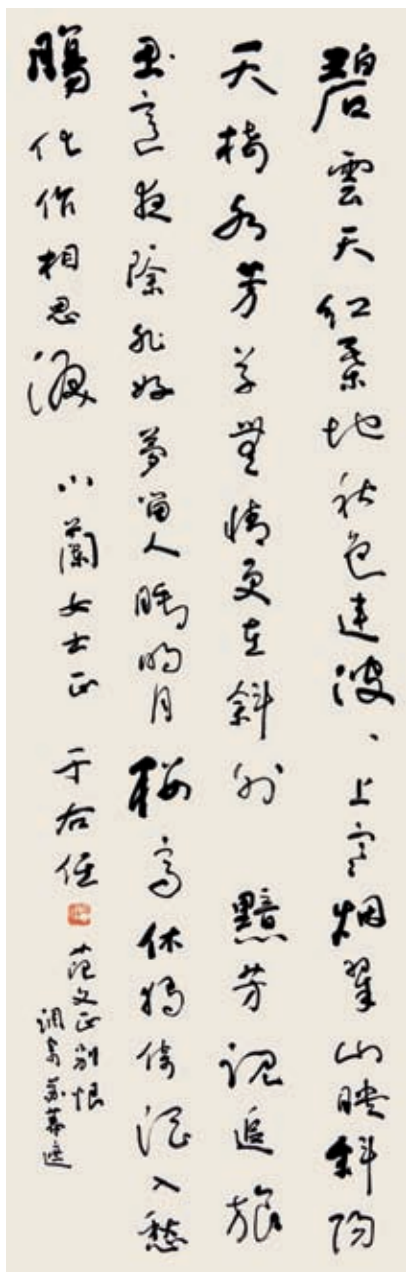 碧雲天紅葉地秋色連波、上寒烟翠山映斜陽
天接水芳草無情更在斜外 黯芳魂追旅
思夜除非好夢留人睡明月樓高休獨倚酒入愁
腸化作相思淚 小蘭女士正 于右任
范文正別恨
調寄蘇幕遮